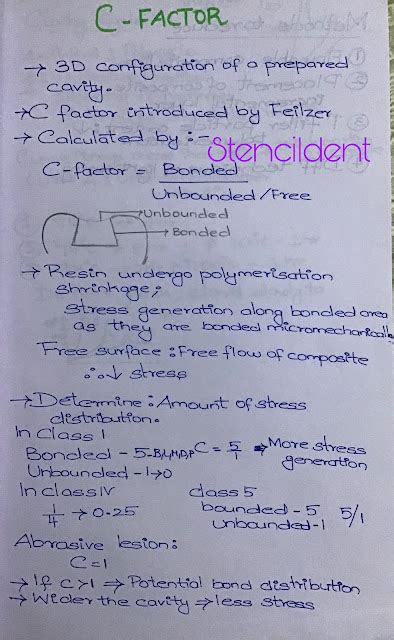 C-FACTOR
→ 3D configuration of a prepared
cavity.
→ C factor introduced by Feilzer
→ Calculated by :-
Stencildent
C-factor = Bonded
Unbounded/Free
Unbounded
Bonded
→ Resin undergo polymerisation
shrinkage;
stress generation along bonded area
as they are bonded micromechanically
Free surface : Free flow of composite
∴ ↓ stress
→ Determine : Amount of stress
distribution.
In Class I
Bonded - 5-B,L,M,D,P C = 5/1 ⇒ More stress
generation
Unbounded - 1→O
In class IV class 5
1/4 → 0.25 bounded - 5 5/1
unbounded - 1
Abrasive lesion:
C = 1
→ If C>1 ⇒ Potential bond distribution
→ Wider the cavity ⇒ less stress